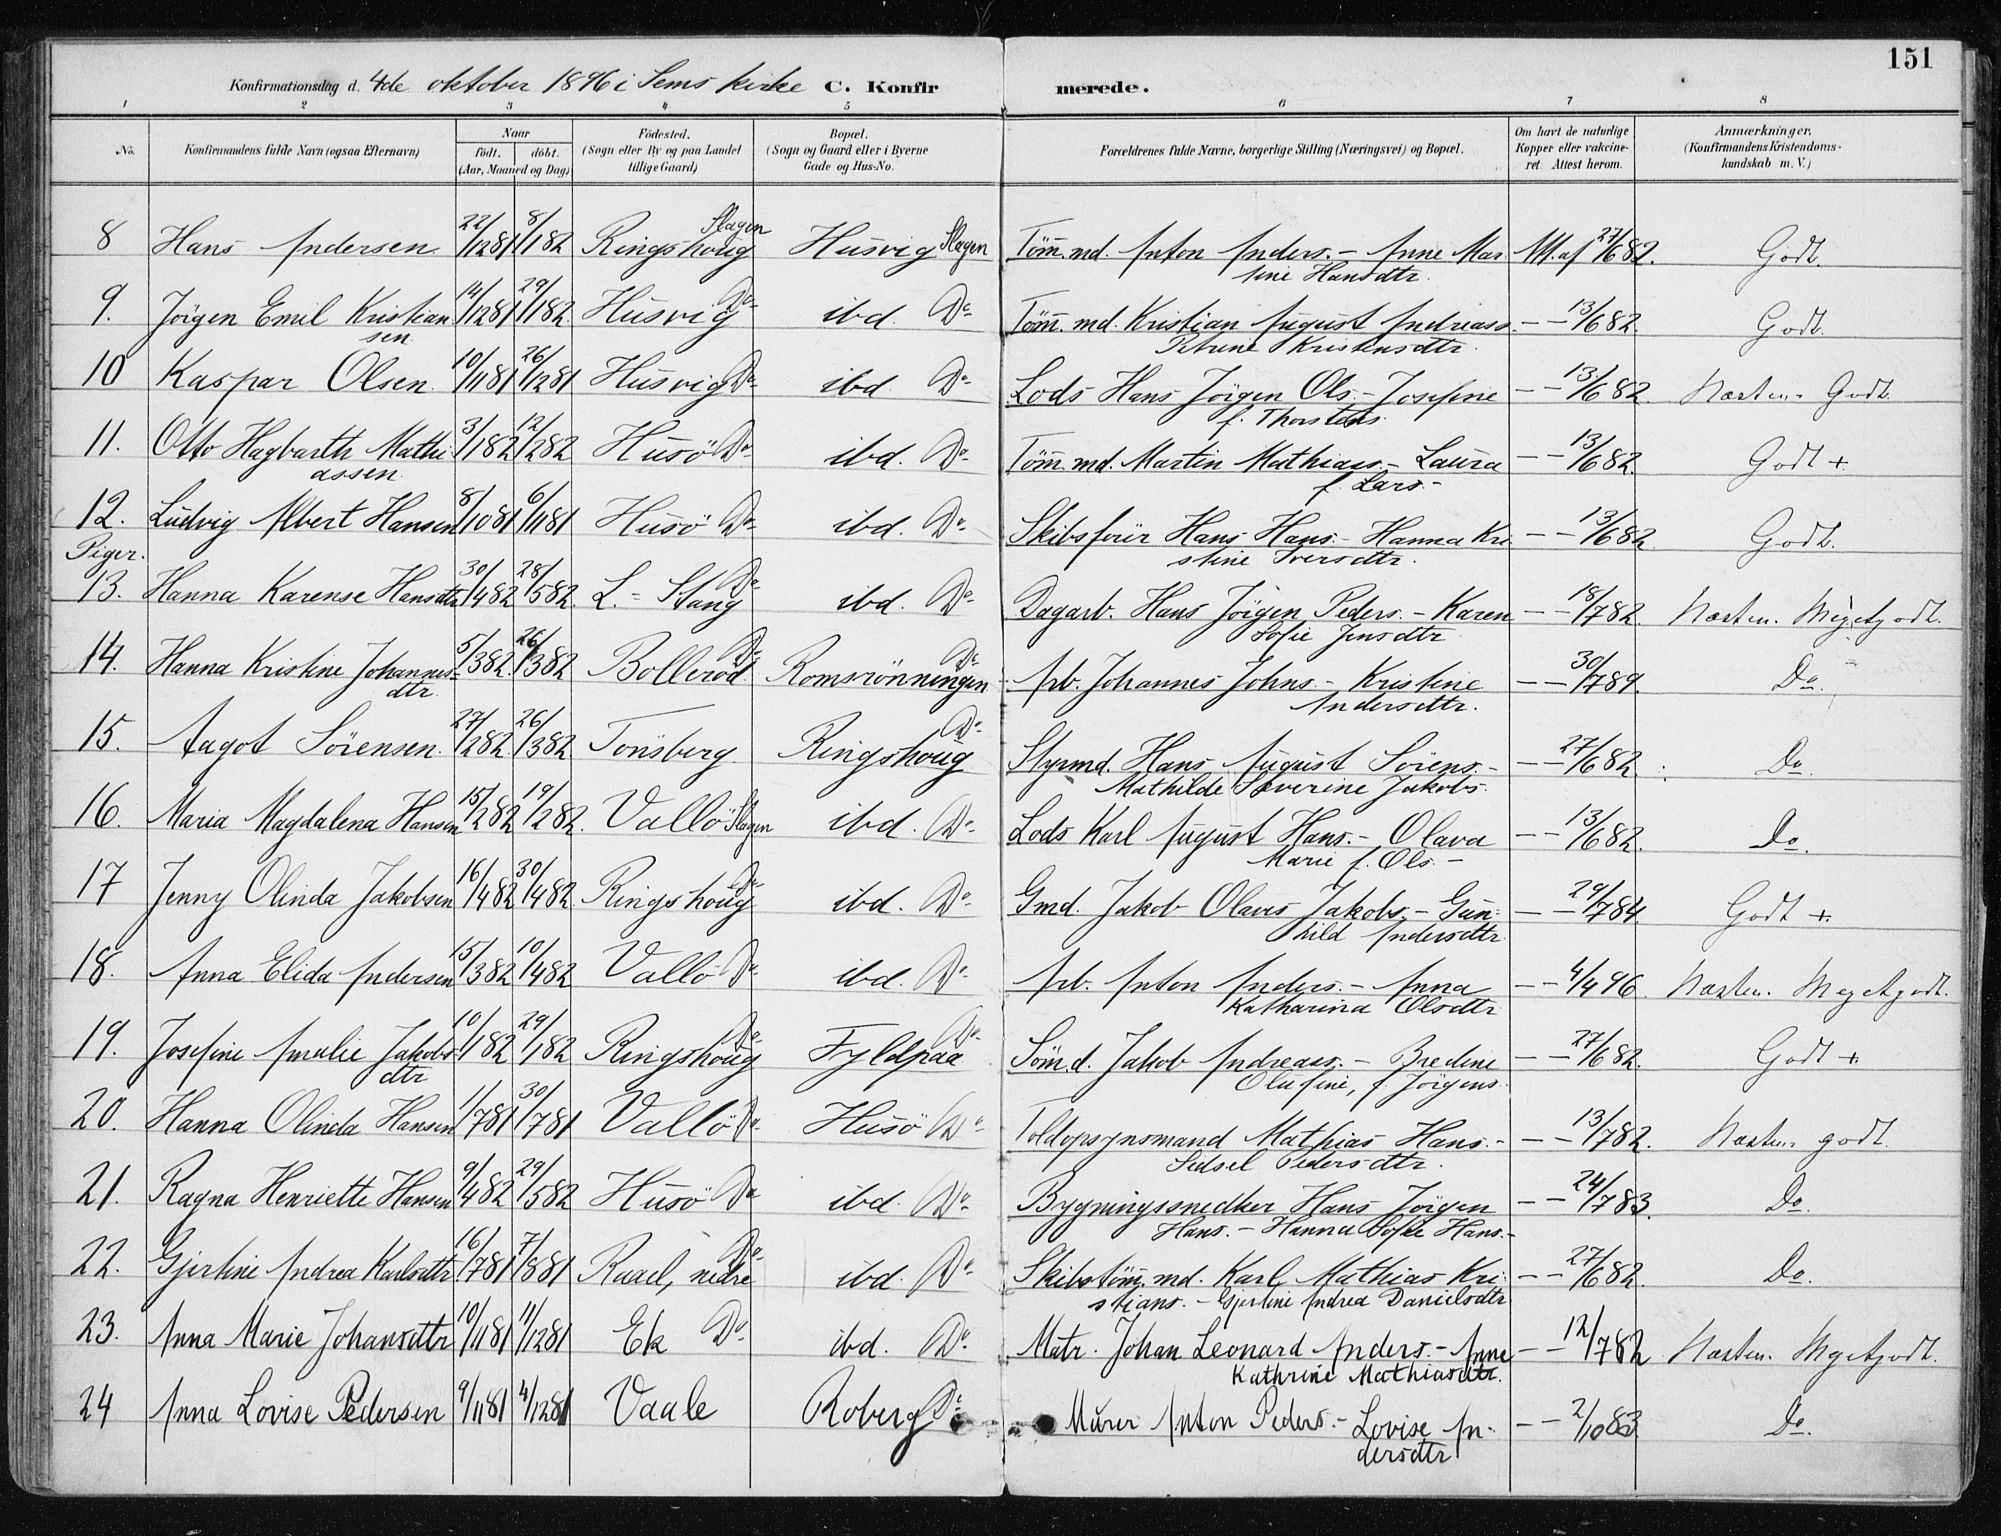 151
Konfirmationsdag d. 4de oktober 1896 i Sems kirke C. Konfirmerede.
1 2 3 4 5 6 7 8
No. Konfirmandens fulde Navn (ogsaa Efternavn) Naar födt. döbt. (Aar, Maaned og Dag) Födested. (Sogn eller By og paa Landet tillige Gaard) Bopæl. (Sogn og Gaard eller i Byerne Gade og Hus-No. Forældrenes fulde Navne, borgerlige Stilling (Næringsvei) og Bopæl. Om havt de naturlige Kopper eller vakcineret. Attest herom. Anmærkninger. (Konfirmandens Kristendomskundskab m. V.)
8 Hans Andersen 22/12 81 8/1 82 Ringshoug Slagen Husvig Slagen Tøm.md. Anton Anders. - Anne Mar- Att. af 27/6 82. Godt.
tine Hansdtr.
9. Jörgen Emil Kristian 14/12 81 29/1 82. Husvig Do ibd. Do Tøm.md. Kristian August Andreass. — — 13/6 82. Godt.
sen Petrine Kristensdtr.
10 Kaspar Olsen 10/11 81 26/12 81 Husvig Do ibd. Do Lods Hans Jörgen Ols. - Josefine — — 13/6 82 Næsten Godt.
f. Thorstens.
11. Otto Hagbarth Mathi 3/1 82 12/2 82 Husö Do ibd. Do Tøm.md. Martin Mathias. - Laura — — 13/6 82 Godt +
assen. f. Lars. -
12. Ludvig Albert Hansen 8/10 81 6/11 81 Husö Do ibd. Do Skibsförer Hans Hans. - Hanna Kri — — 13/6 82. Godt.
stine Iversdtr.
Piger.
13. Hanna Karense Hansdtr 30/4 82 28/5 82. L. - Stang Do ibd. Do Dagarb. Hans Jörgen Peders. - Karen — — 18/7 82. Næsten. Megetgodt.
Sofie Jensdtr
14. Hanna Kristine Johannes- 5/3 82. 26/3 82 Bolleröd Do Romsrönningen Do Arb. Johannes Johns. - Kristine — — 30/7 89. Do.
dtr. Andersdtr.
15. Aagot Sörensen. 27/2 82. 26/3 82 Tönsberg Ringshoug Do Styrmd. Hans August Sörens. - — — 27/6 82 Do
Mathilde Severine Jakobs.
16. Maria Magdalena Hansen 15/2 82 19/2 82. Vallö Slagen ibd. Do Lods Karl August Hans. - Olava — — 13/6 82. Do.
Marie f. Ols. -
17 Jenny Olinda Jakobsen 16/4 82 30/4 82 Ringshoug Do ibd. Do Gmd. Jakob Olaus Jakobs. - Gun- — — 29/7 84 Godt +
hild Andersdtr
18. Anna Elida Andersen 15/3 82 10/4 82 Vallö Do ibd. Do Arb. Anton Anders. - Anna — — 4/4 96. Næsten. Megetgodt.
Katharina Olsdtr
19. Josefine Amalie Jakobs- 10/1 82 29/1 82 Ringshoug Do Fyldpaa Do Sömd. Jakob Andreas. - Bredine — — 27/6 82. Godt +
dtr Olufine, f. Jörgens.
20. Hanna Olinda Hansen 1/7 81 30/7 81 Vallö Do Husö Do Toldopsynsmand Mathias Hans. - — — 13/7 82. Næsten godt.
Sidsel Pedersdtr.
21. Ragna Henriette Hansen 9/4 82 29/5 82 Husö Do ibd. Do Bygningssnedker Hans Jörgen — — 24/7 83. Do.
Hans. - Hanna Sofie Hans. -
22. Gjertine Andrea Karlsdtr 16/7 81 7/8 81 Raael, nedre Do ibd. Do Skibstøm.md. Karl Mathias Kri — — 27/6 82. Do.
stians. - Gjertine Andrea Danielsdtr
23. Anna Marie Johansdtr 10/11 81 11/12 81 Ek Do ibd. Do Matr. Johan Leonard Anders. - Anne — — 12/7 82 Næsten. Megetgodt.
Kathrine Mathiasdtr.
24 Anna Lovise Pedersen 9/11 81 4/12 81 Vaale Roberg Do Murer Anton Peders. - Lovise An- — — 2/10 83 Do.
dersdtr